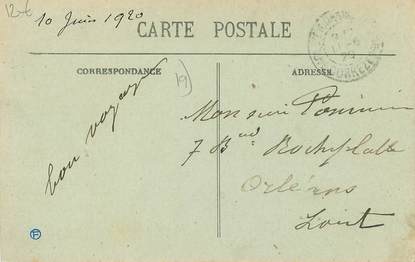 12-6
10 Juin 1920
CARTE POSTALE
CORRESPONDANCE
ADRESSE
19
bon voyage
Monsieur
7 Bd Rocheplatte
Orléans
Loiret
CORREZE
F